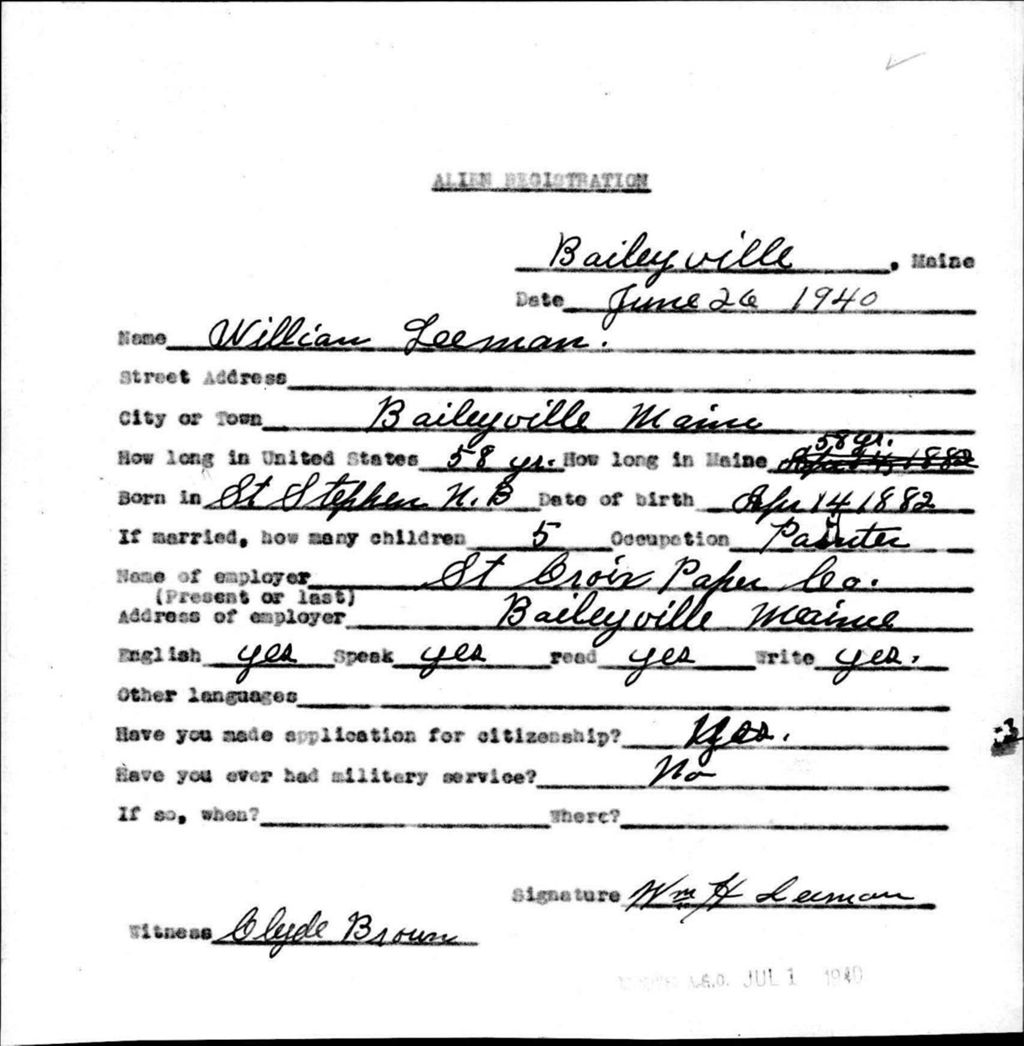 ALIEN REGISTRATION
Baileyville, Maine
Date June 26 1940
Name William Leeman.
Street Address
City or Town Baileyville Maine
58 yr.
How long in United States 58 yr. How long in Maine Apr 14, 1882
Born in St Stephen N.B Date of birth Apr 14 1882
If married, how many children 5 Occupation Painter
Name of employer St Croix Paper Co.
(Present or last)
Address of employer Baileyville Maine
English yes Speak yes read yes Write yes.
Other languages
Have you made application for citizenship? Yes.
Have you ever had military service? No
If so, when? Where?
Signature Wm H Leeman
Witness Clyde Brown
A.G.O. JUL 1 1940